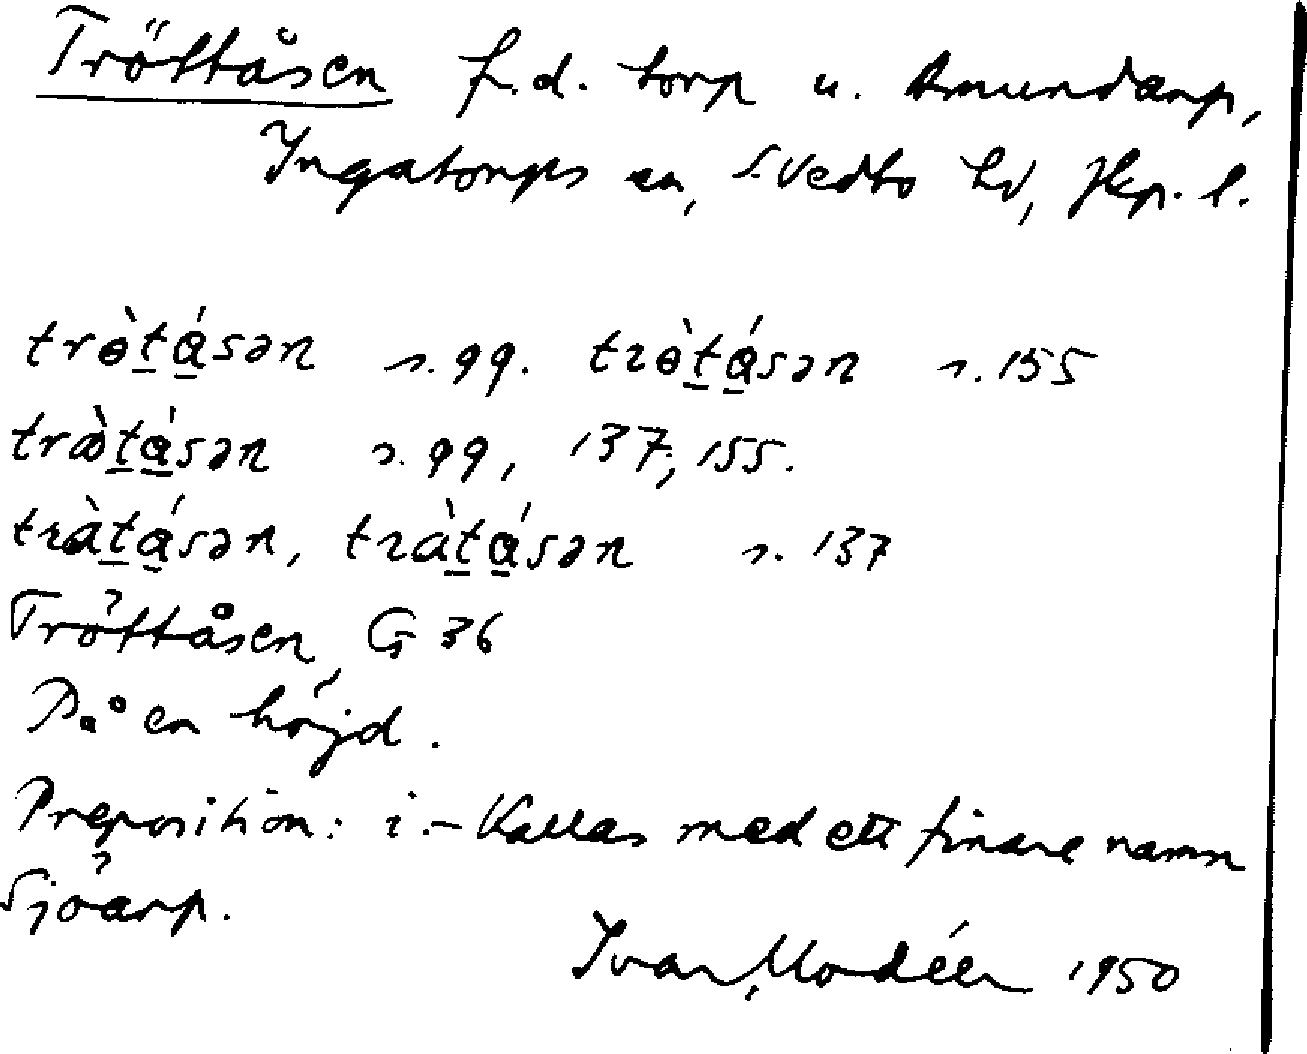 Tröttåsen f.d. torp u. Amundarp,
Ingatorps sn, Svedbo hd, Jkp. l.
trɵ̀t̲á̲sən s. 99. trɵ̀t̲á̲sən s. 155
trœ̀t̲á̲sən s. 99, 137, 155.
tràt̲á̲sən, tràt̲á̲sən s. 137
Tröttåsen, G 36
På en höjd.
Preposition: i. – Kallas med ett finare namn
Sjöarp.
Ivar Modéer 1950